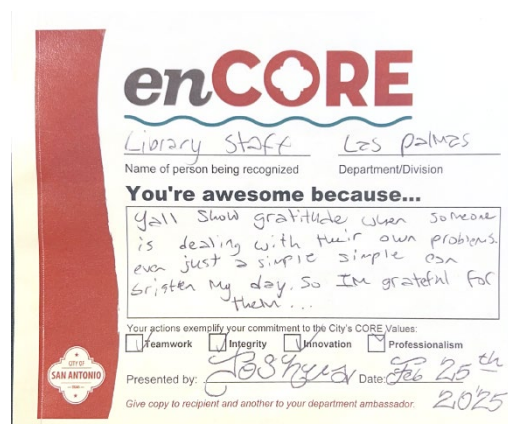 enCORE
Library Staff Las Palmas
Name of person being recognized Department/Division
You're awesome because...
Yall show gratitude when someone
is dealing with their own problems.
even just a simple simple can
brigten my day. So IM grateful for
them...
Your actions exemplify your commitment to the City's CORE Values:
Teamwork Integrity Innovation Professionalism
Presented by: Joshua Date: Feb 25th
2025
CITY OF
SAN ANTONIO
Give copy to recipient and another to your department ambassador.